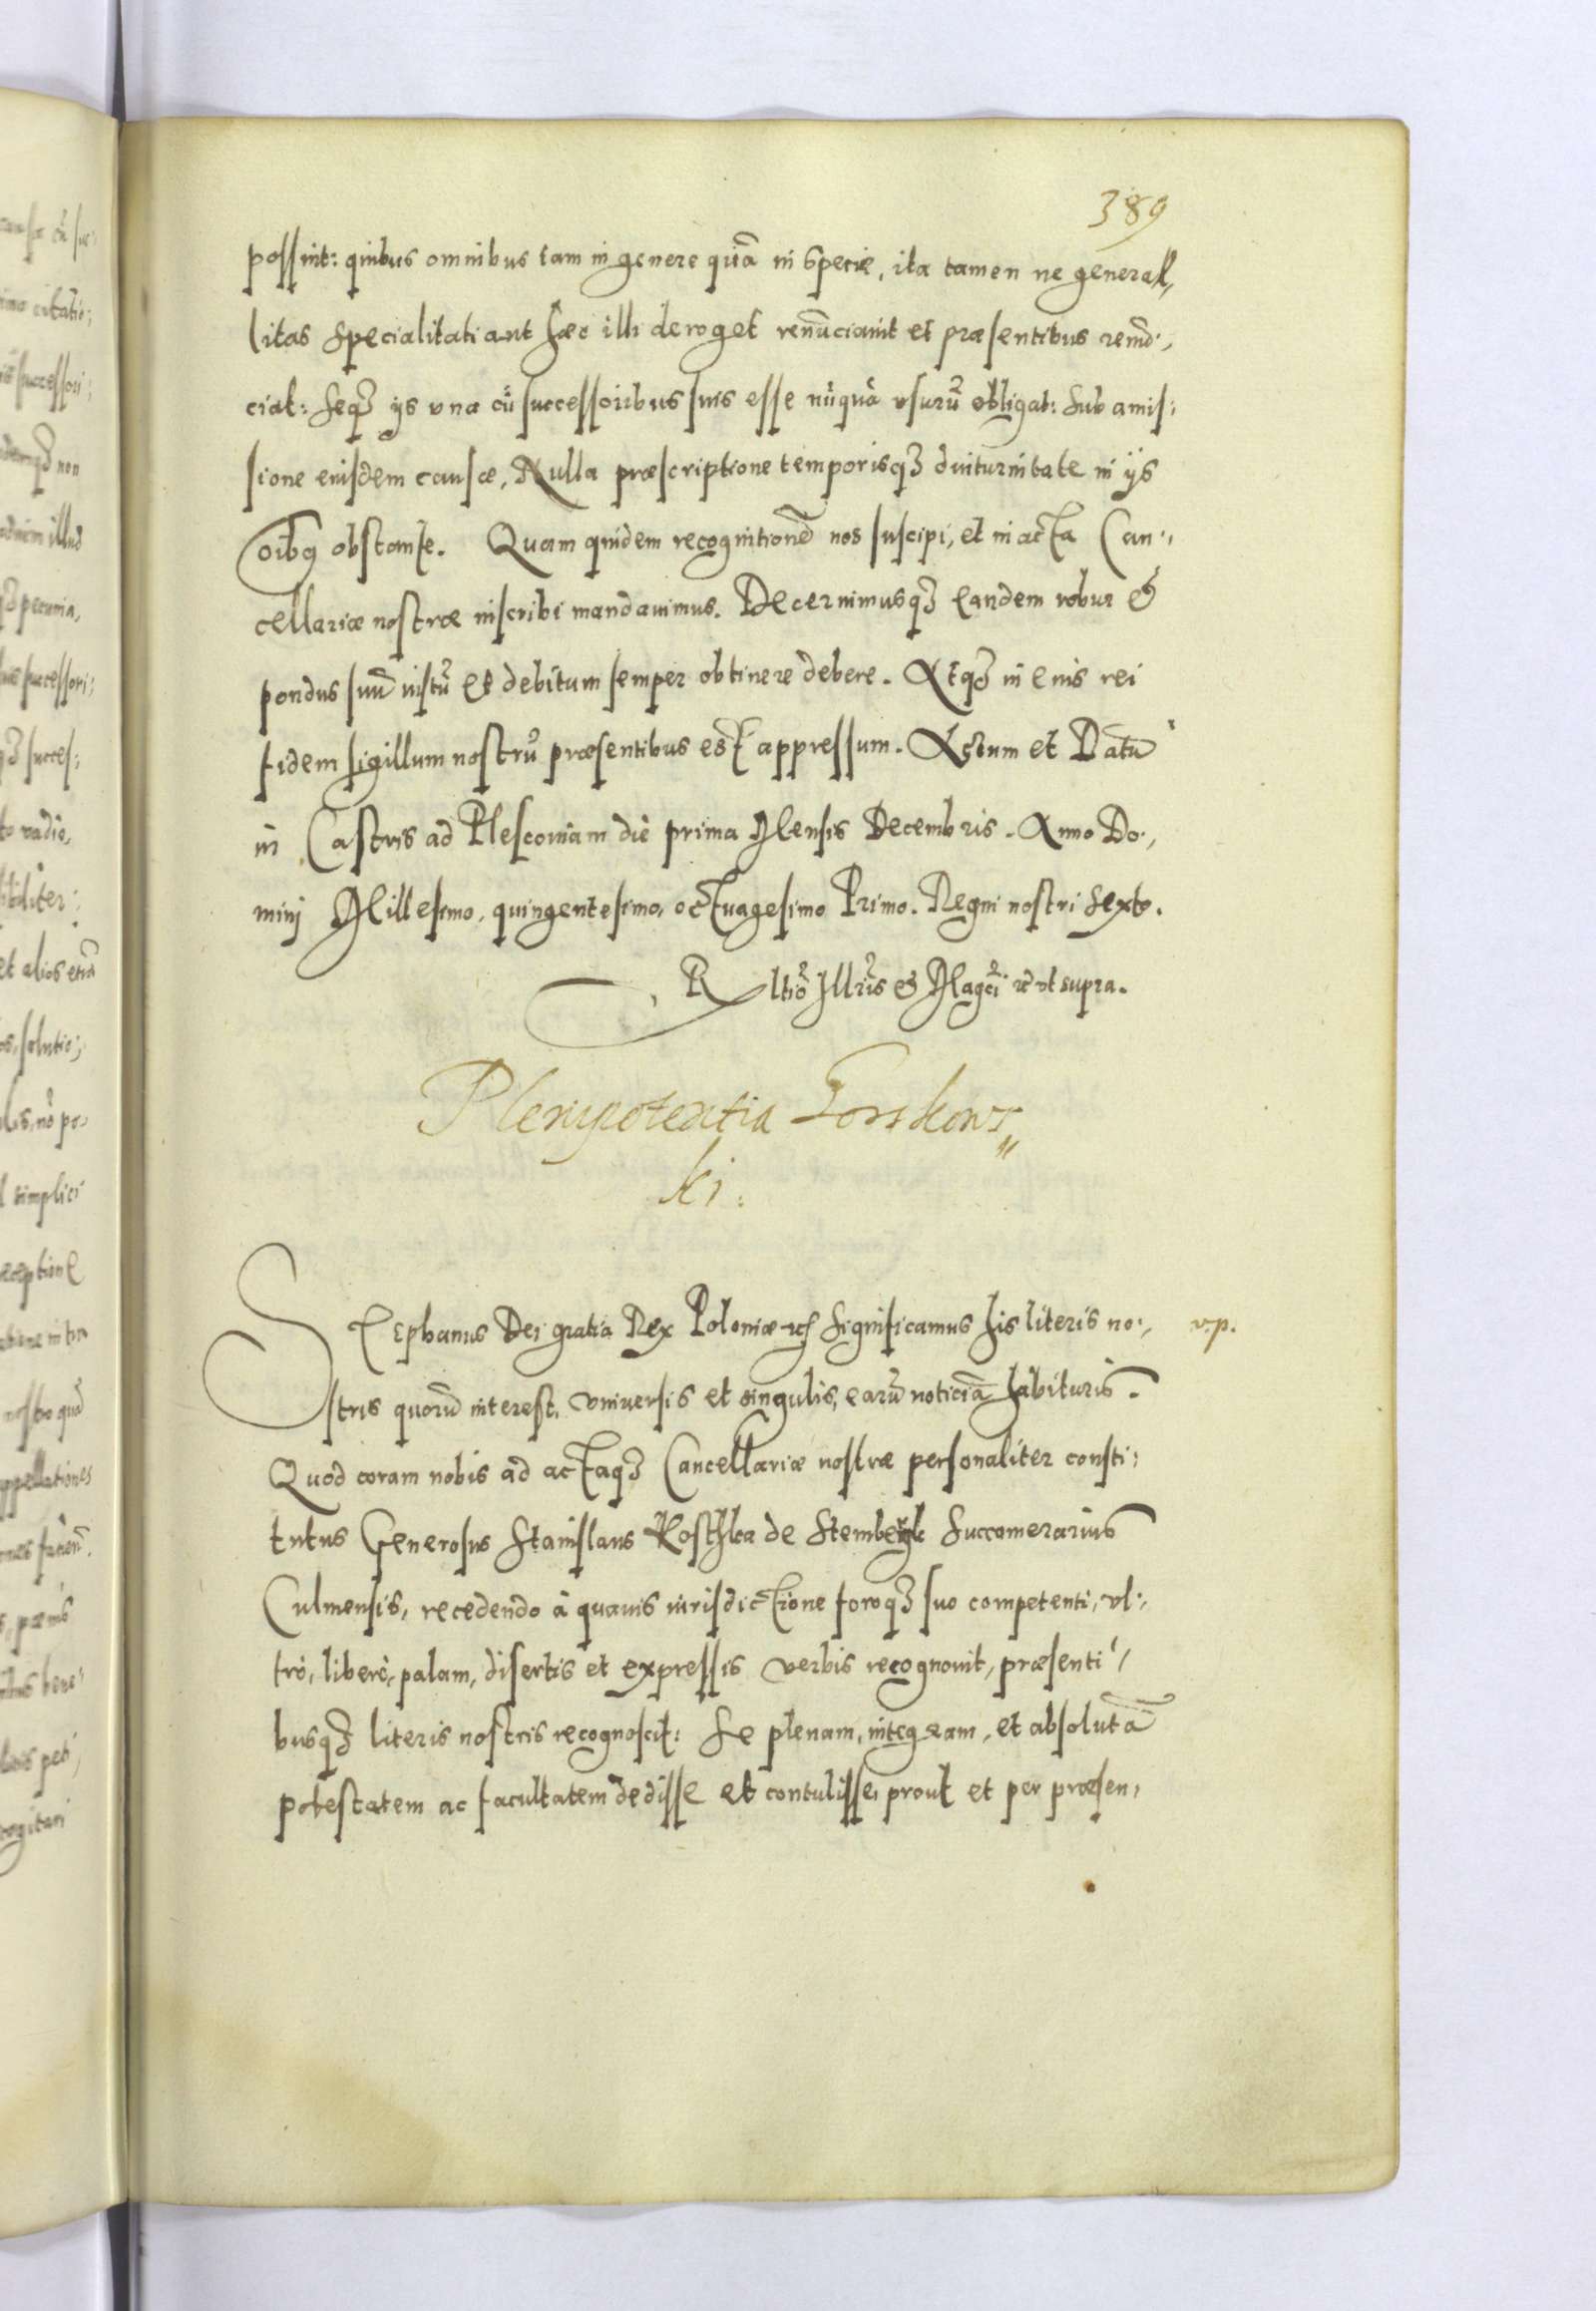 389
possint: quibus omnibus tam in genere quā in specie, ita tamen ne general,,
litas specialitati aut hæc illi deroget renūciauit et præsentibus renū:,
ciat: seqꝫ ijs vna cū successoribus suis esse nūquā vsurū obligat: sub amis:
sione eiusdem causæ, Nulla præscriptione temporisqꝫ diuturnitate in ijs
oībꝰ obstante. Quam quidem recognitionē nos suscipi, et in acta Can:,
cellariæ nostræ inscribi mandauimus. Decernimusqꝫ eandem robur &
pondus suū iustū et debitum semper obtinere debere. Atqꝫ in eius rei
fidem sigillum nostrū præsentibus est appressum. Actum et Datū
in Castris ad Plescouiam die prima Mensis Decembris. Anno Do:,
minj Millesimo, quingentesimo, octuagesimo Primo. Regni nostri sexto.
Rltiō Illris & Magci ꝛc vt supra.
Plenipotentia Kostkows,,
ki:
Stephanus Dei gratia Rex Poloniæ ꝛc Significamus his literis no:,
v.p.
stris quorū interest, vniuersis et singulis, earū noticiā habituris.
Quod coram nobis ad actaqꝫ Cancellariæ nostræ personaliter consti:
tutus Generosus Stanislaus Kosthka de Stembergk Succamerarius
Culmensis, recedendo à quauis iurisdictione foroqꝫ suo competenti, vl:,
trò, liberè, palam, disertis et expressis verbis recognouit, præsenti:,
busqꝫ literis nostris recognoscit: Se plenam, integram, et absolutā
potestatem ac facultatem dedisse et contulisse, prout et per præsen,